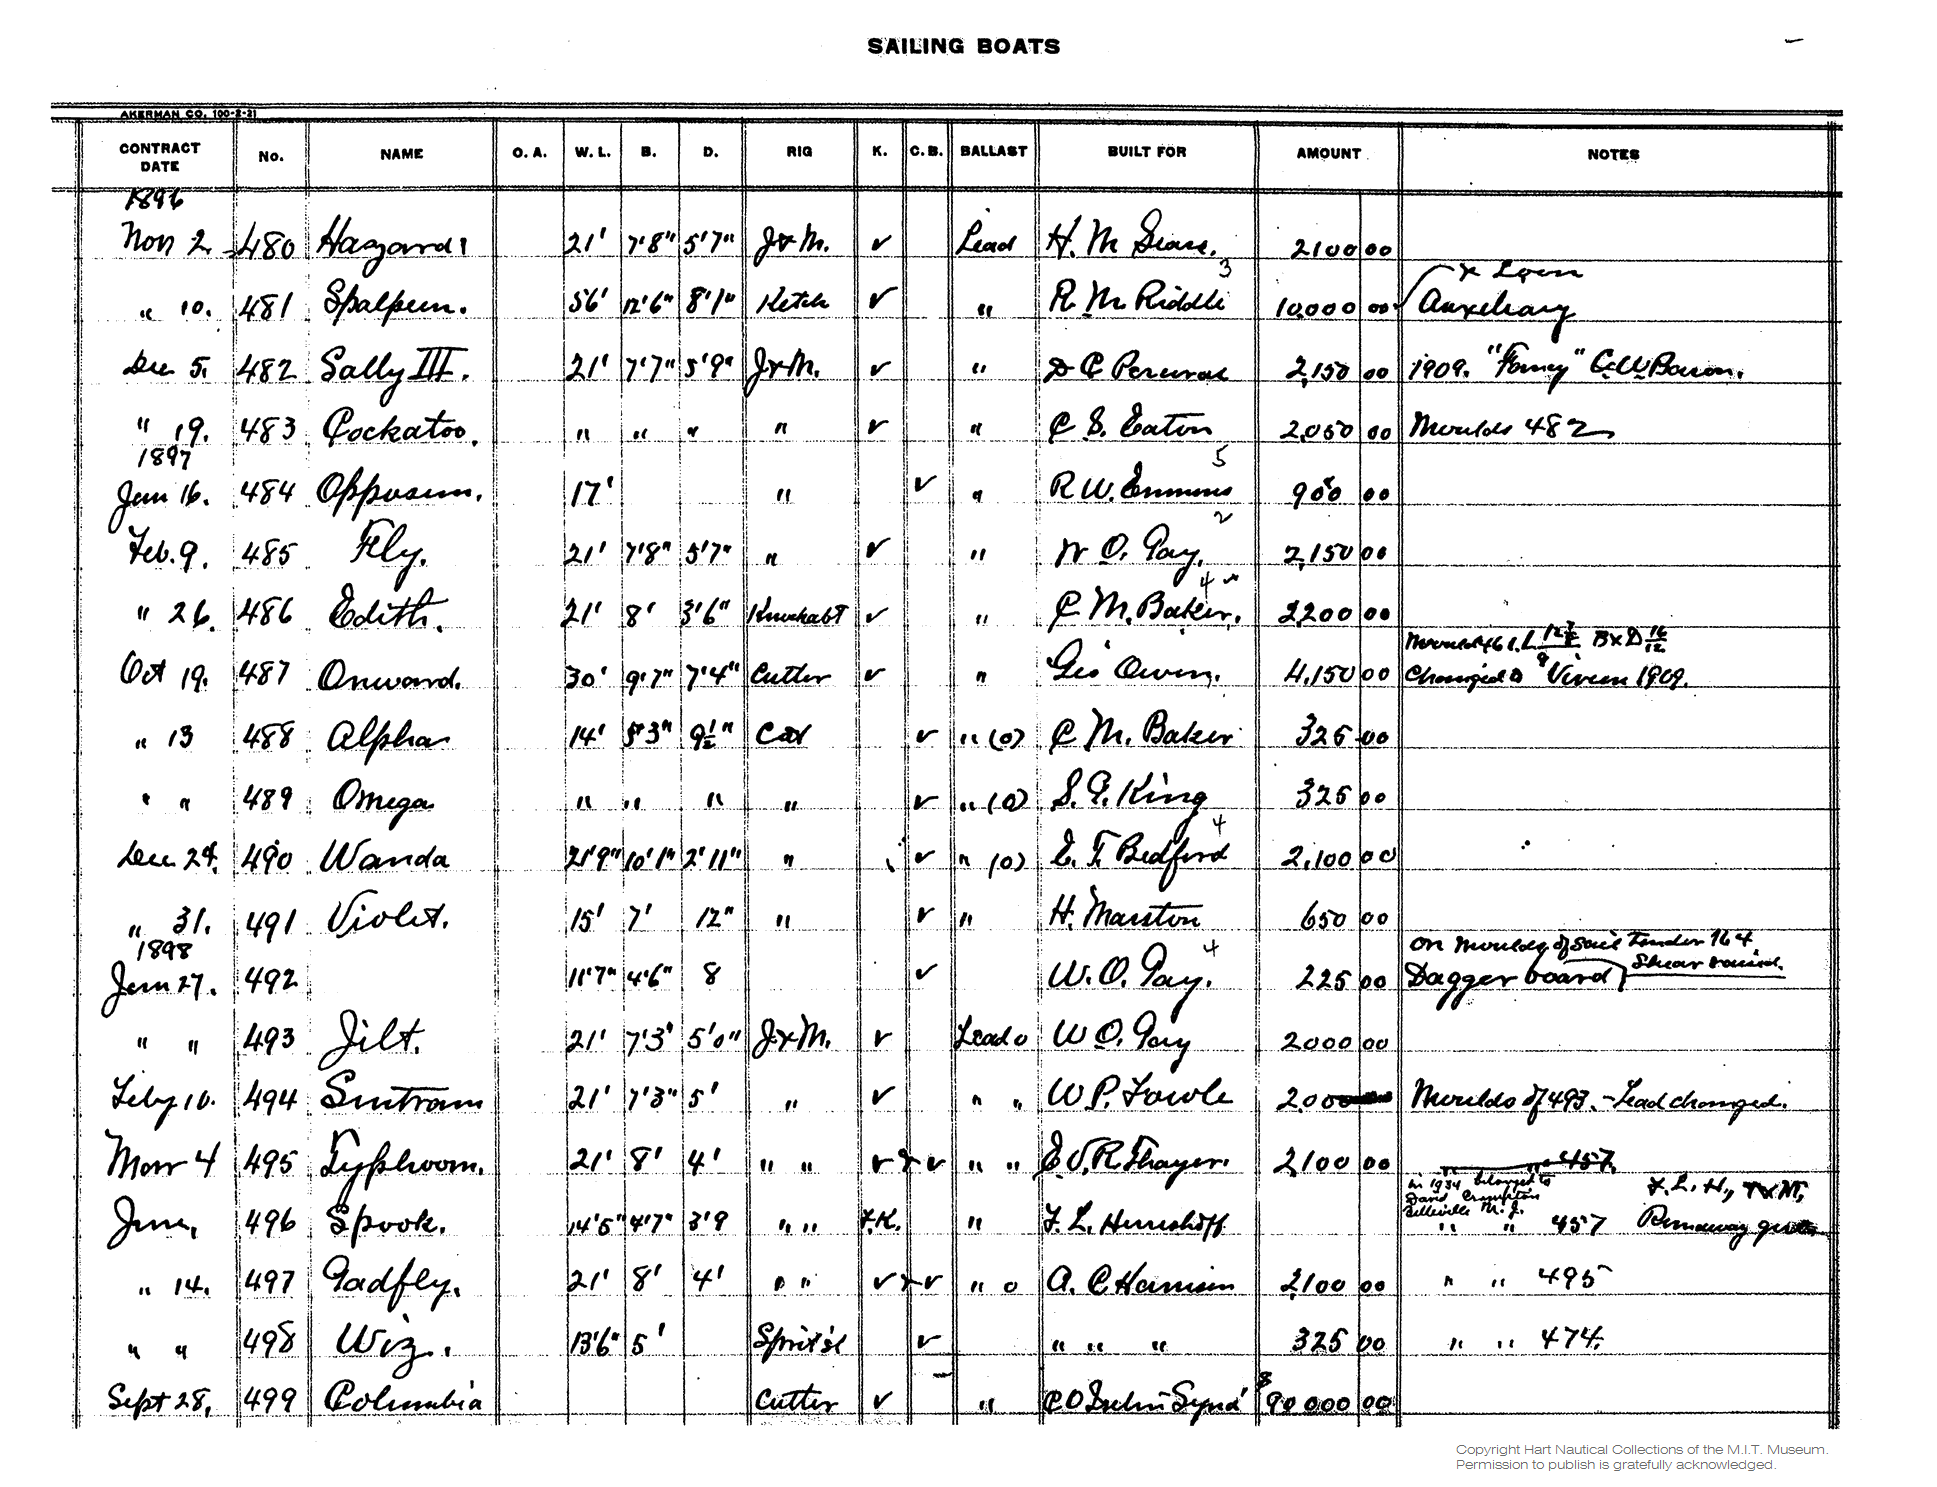 SAILING BOATS
AKERMAN CO. 100-2-21
CONTRACT DATE No. NAME O. A. W. L. B. D. RIG K. C. B. BALLAST BUILT FOR AMOUNT NOTES
1896
Nov 2 480 Hazard 21' 7'8" 5'7" J & M. ✓ Lead H. M Sears. 2100 00
3 & Loan
" 10. 481 Spalpeen. 56' 12'6" 8'1" Ketch ✓ " R. M. Riddle 10,000 00 Auxiliary
Dec 5. 482 Sally III. 21' 7'7" 5'9" J & M. ✓ " D C Percival 2,150 00 1909. "Fancy" C. W. Bacon.
" 19. 483 Cockatoo. " " " " ✓ " C S. Eaton 2,050 00 Moulds 482
1897 5
Jan 16. 484 Opposum. 17' " ✓ " R. W. Emmons 900 00
2
Feb. 9. 485 Fly. 21' 7'8" 5'7" " ✓ " W O. Gay. 2,150 00
4
" 26. 486 Edith. 21' 8' 3'6" Knockabt ✓ " C M. Baker. 2200 00
B x D 16/12
Oct 19. 487 Onward. 30' 9'7" 7'4" Cutter ✓ " Geo Owen. 4,150 00 Changed Vivien 1909.
" 13 488 Alpha 14' 5'3" 9½" Cat ✓ " (O) C M. Baker 325 00
" " 489 Omega " " " " ✓ " (O) S. G. King 325 00
4
Dec 24. 490 Wanda 21'9" 10'1" 2'11" " ✓ " (O) E. T. Bedford 2,100 00
" 31. 491 Violet. 15' 7' 12" " ✓ " H. Marston 650 00
1898 4 on moulds of sail tender 164. Shear raised.
Jan 27. 492 11'7" 4'6" 8 ✓ W. O. Gay. 225 00 Dagger board
" " 493 Jilt. 21' 7'3" 5'0" J & M. ✓ Lead o W O. Gay 2000 00
Feby 10. 494 Sintram 21' 7'3" 5' " ✓ " " W P. Fowle 2000 Moulds of 493. - Lead changed.
Mar 4 495 Typhoon. 21' 8' 4' " " ✓ & ✓ " " E. V. R. Thayer. 2,100 00 " " 457.
in 1934 belonged to
David Crompton F. L. H.,
Belleville N. J.
June, 496 Spook. 14'5" 4'7" 3'9 " " F.K. " F. L. Herreshoff " " 457 Runaway
" 14. 497 Gadfly. 21' 8' 4' " " ✓ & ✓ " o A. C Harrison 2,100 00 " " 495
" " 498 Wiz. 13'6" 5' Sprits'l ✓ " " " 325 00 " " 474.
Sept 28. 499 Columbia Cutter ✓ " C O Iselin Synd $90 000 00
Copyright Hart Nautical Collections of the M.I.T. Museum.
Permission to publish is gratefully acknowledged.